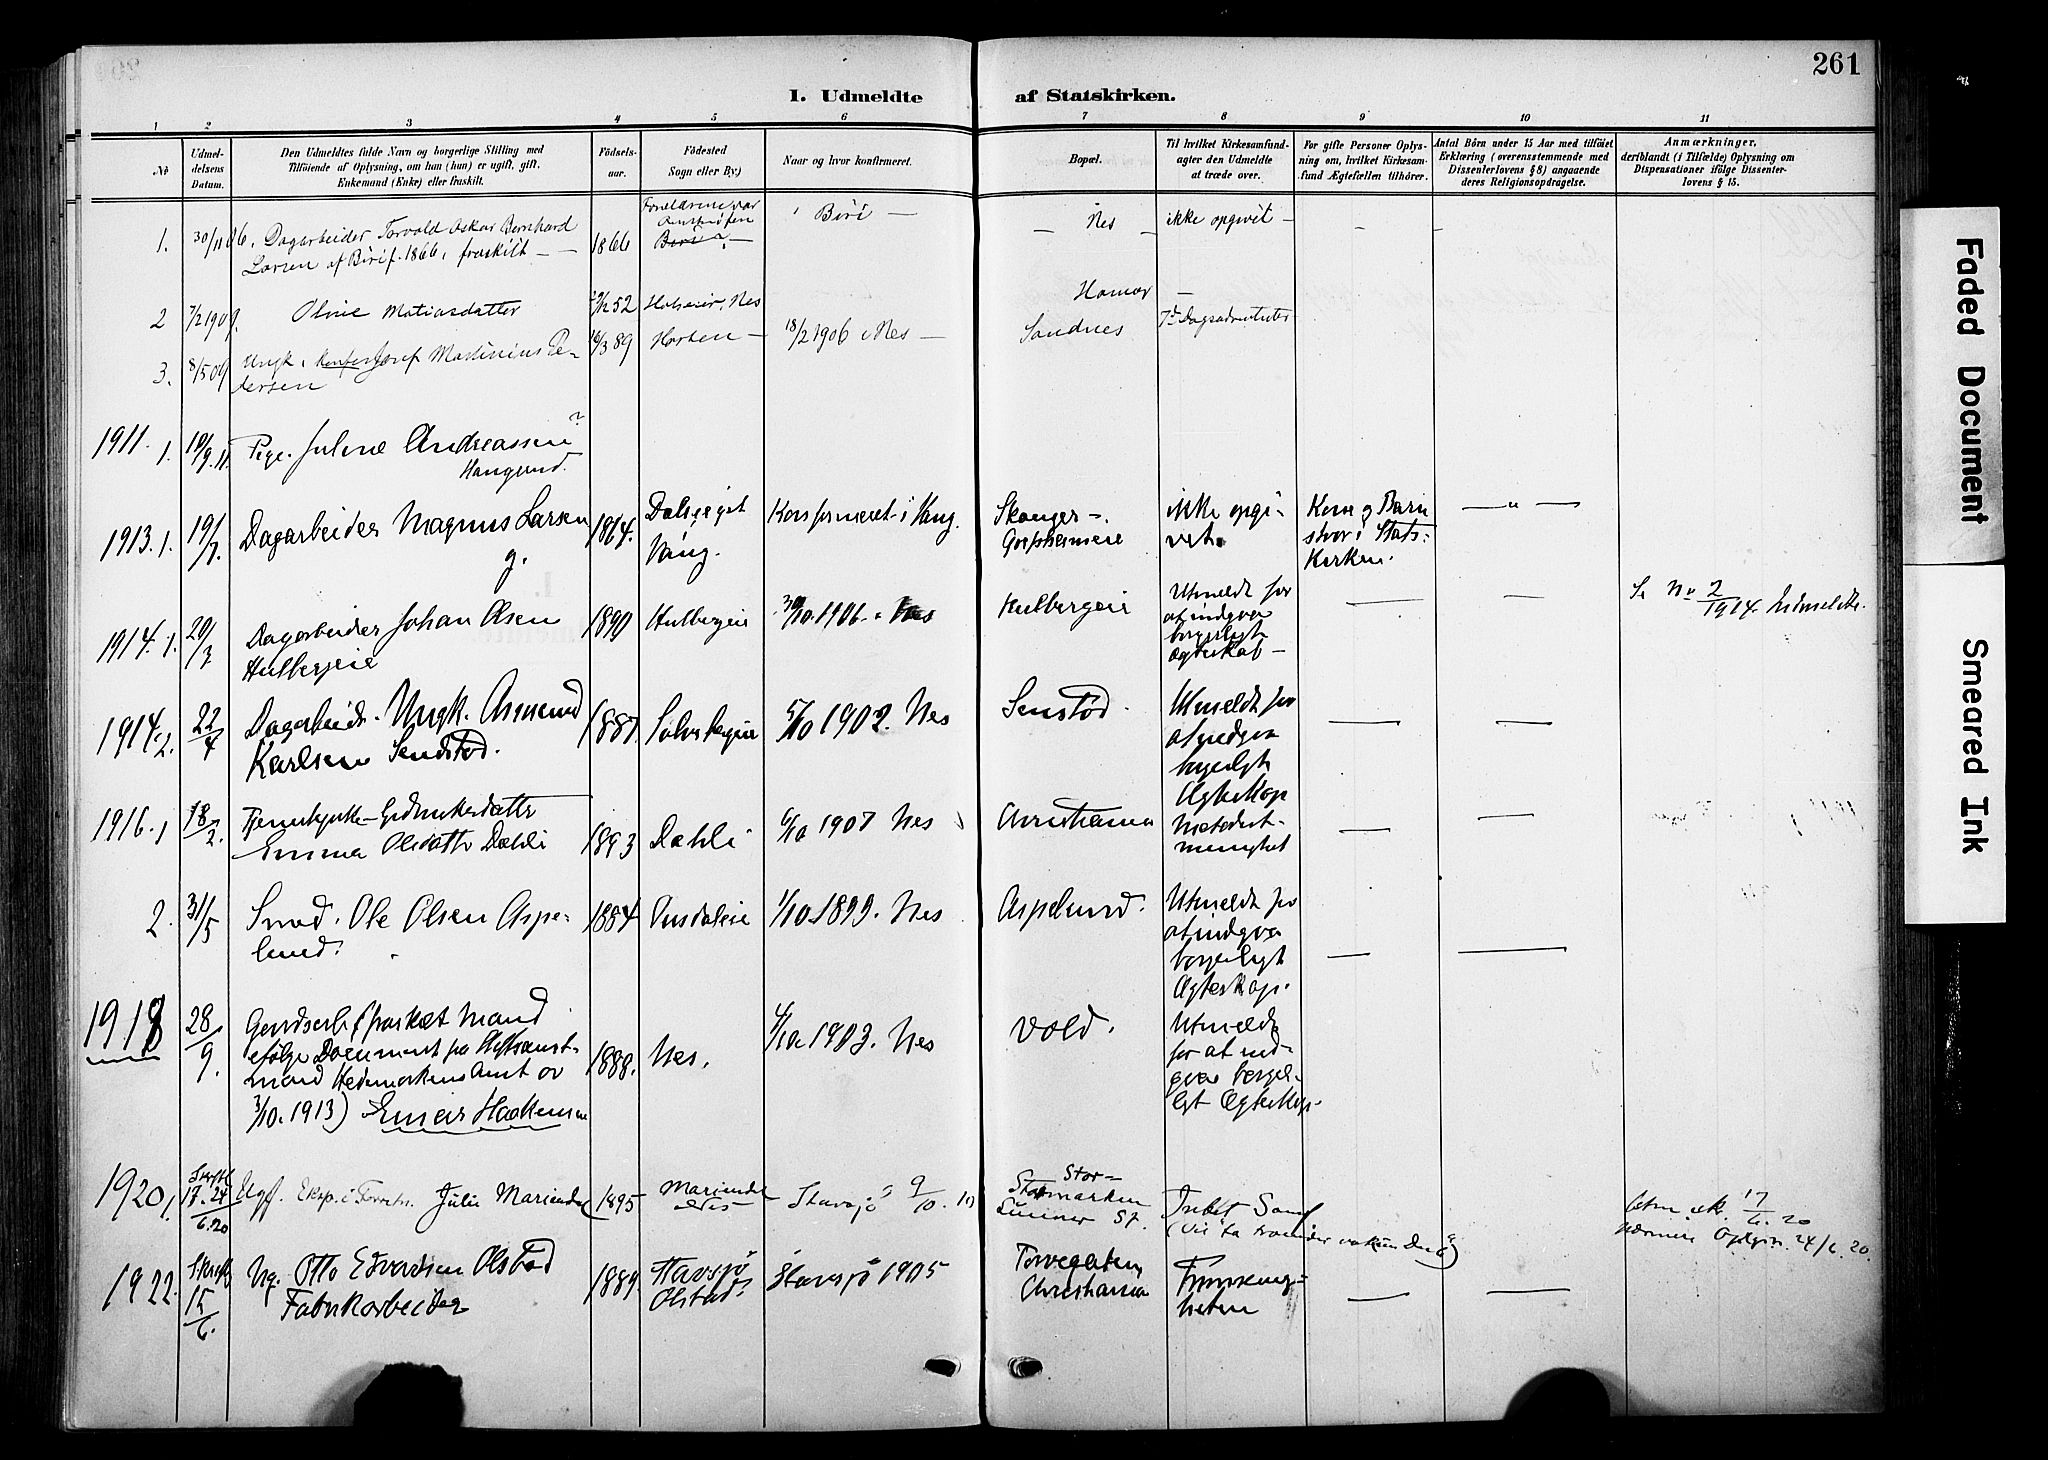 261
I. Udmeldte af Statskirken.
1 2 3 4 5 6 7 8 9 10 11
No
Udmel-
delsens
Datum.
Den Udmeldtes fulde Navn og borgerlige Stilling med
Tilföiende af Oplysning, om han (hun) er ugift, gift,
Enkemand (Enke) eller fraskilt.
Födsels-
aar.
Födested
Sogn eller By.)
Naar og hvor konfirmeret.
Bopæl.
Til hvilket Kirkesamfund-
agter den Udmeldte
at træde over.
For gifte Personer Oplys-
ning om, hvilket Kirkesam-
fund Ægtefællen tilhörer.
Antal Börn under 15 Aar med tilföiet
Erklæring (overensstemmende med
Dissenterlovens § 8) angaaende
deres Religionsopdragelse.
Anmærkninger,
deriblandt (i Tilfælde) Oplysning om
Dispensationer ifölge Dissenter-
lovens § 15.
1. 30/11 06. Dagarbeider Torvald Oskar Bernhard
Larsen af Biri f. 1866, fraskilt —
1866
Forældrene var
Biri —
— Nes —
ikke opgivit —
2 7/2 1909. Oline Matiasdatter
52
Nes
Hamar
—
3. 8/5 09 Ungk. Josef Martinius Pe-
dersen
16/3 89
Horten —
18/2 1906 i Nes —
Sandnes
7de Dagsadventister
1911. 1. 19/9. 11. Pige. Juline Andreassen?
Haugrud.
1913. 1. 19/7. Dagarbeider Magnus Larsen
g.
1864.
Vang.
Konfirmeret i Vang.
Skanger -
ikke opgi-
vet.
Kone og Barn
staar i Stats-
Kirken.
— " —
1914. 1. 20/3 Dagarbeider Johan Olsen
Hulbergeie
1890
Hulbergeie
30/10. 1906. Nes
Hulbergeie
Utmeldt for
at indgaa
borgerligt
Ægteskab —
—
—
Se No 2/1914 Indmeldte.
1914. 2. 22/4 Dagarbeid. Ungk. Amund
Karlsen Sendstad.
1887.
Sølvsbergeie
5/10 1902. Nes
Senstad.
Utmeldt for
at indgaa
borgerligt
Ægteskap
—
—
1916. 1 18/2. Tjenerhjelp - Gdbrukerdatter
Emma Olsdatter Dæhli
1893
Dæhli
6/10 1907 Nes
Christiania
Metodist-
menighet
—
—
2. 31/5 Smed. Ole Olsen Aspe-
lund.
1884
1/10 1899. Nes
Aspelund.
Utmeldt for
at indgaa
borgerligt
Ægteskap.
—
—
1918 28/9. Gaardsarb. (fraskilt Mand
ifølge Document fra Stiftsamt-
mand Hedemarkens Amt av
3/10. 1913) Einar Haakensen
1888.
Nes.
4/10 1903. Nes
Vold.
Utmeldt
for at ind-
gaa borger-
ligt Ægteskap.
1920 1. Skriftl
17. 24/6. 20
Ugf. Eksp. i Forretn. Julie Mariendal
1895
Mariendal
Nes
Stavsjø 9/10. 10
Stor-
Stormarken
Intet Samf
(vil ta
17/6. 20
nærmere Opgiv. 24/6. 20.
1922. Skriftl
15/6.
Ug. Otto Edvardsen Olstad
Fabrikarbeider
1889.
Stavsjø
Olstad.
Stavsjø 1905
Torvegaten,
Christiania
Frimenig-
heten
—
—
Faded Document
Smeared Ink